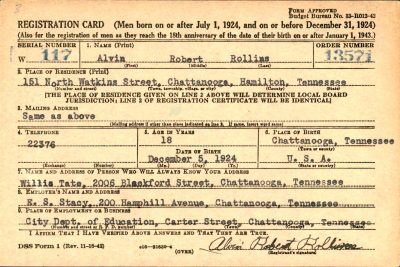 FORM APPROVED
Budget Bureau No. 33-R012-42
REGISTRATION CARD (Men born on or after July 1, 1924, and on or before December 31, 1924)
(Also for the registration of men as they reach the 18th anniversary of the date of their birth on or after January 1, 1943.)
SERIAL NUMBER 1. NAME (Print) ORDER NUMBER
W 117 Alvin Robert Rollins 13571
(First) (Middle) (Last)
2. PLACE OF RESIDENCE (Print)
151 North Watkins Street, Chattanooga, Hamilton, Tennessee
(Number and street) (Town, township, village, or city) (County) (State)
[THE PLACE OF RESIDENCE GIVEN ON LINE 2 ABOVE WILL DETERMINE LOCAL BOARD
JURISDICTION; LINE 2 OF REGISTRATION CERTIFICATE WILL BE IDENTICAL]
3. MAILING ADDRESS
Same as above
[Mailing address if other than place indicated on line 2. If same, insert word same]
4. TELEPHONE 5. AGE IN YEARS 6. PLACE OF BIRTH
22376 18 Chattanooga, Tennessee
DATE OF BIRTH (Town or county)
December 5, 1924 U. S. A.
(Mo.) (Day) (Yr.) (State or country)
7. NAME AND ADDRESS OF PERSON WHO WILL ALWAYS KNOW YOUR ADDRESS
Willie Tate, 2006 Blackford Street, Chattanooga, Tennessee
8. EMPLOYER'S NAME AND ADDRESS
E. S. Stacy, 200 Hamphill Avenue, Chattanooga, Tennessee
9. PLACE OF EMPLOYMENT OR BUSINESS
City Dept. of Education, Carter Street, Chattanooga, Tennessee
(Number and street or R. F. D. number) (Town) (County) (State)
I AFFIRM THAT I HAVE VERIFIED ABOVE ANSWERS AND THAT THEY ARE TRUE.
DSS Form 1 (Rev. 11-16-42) Alvin Robert Rollins
(Registrant's signature)